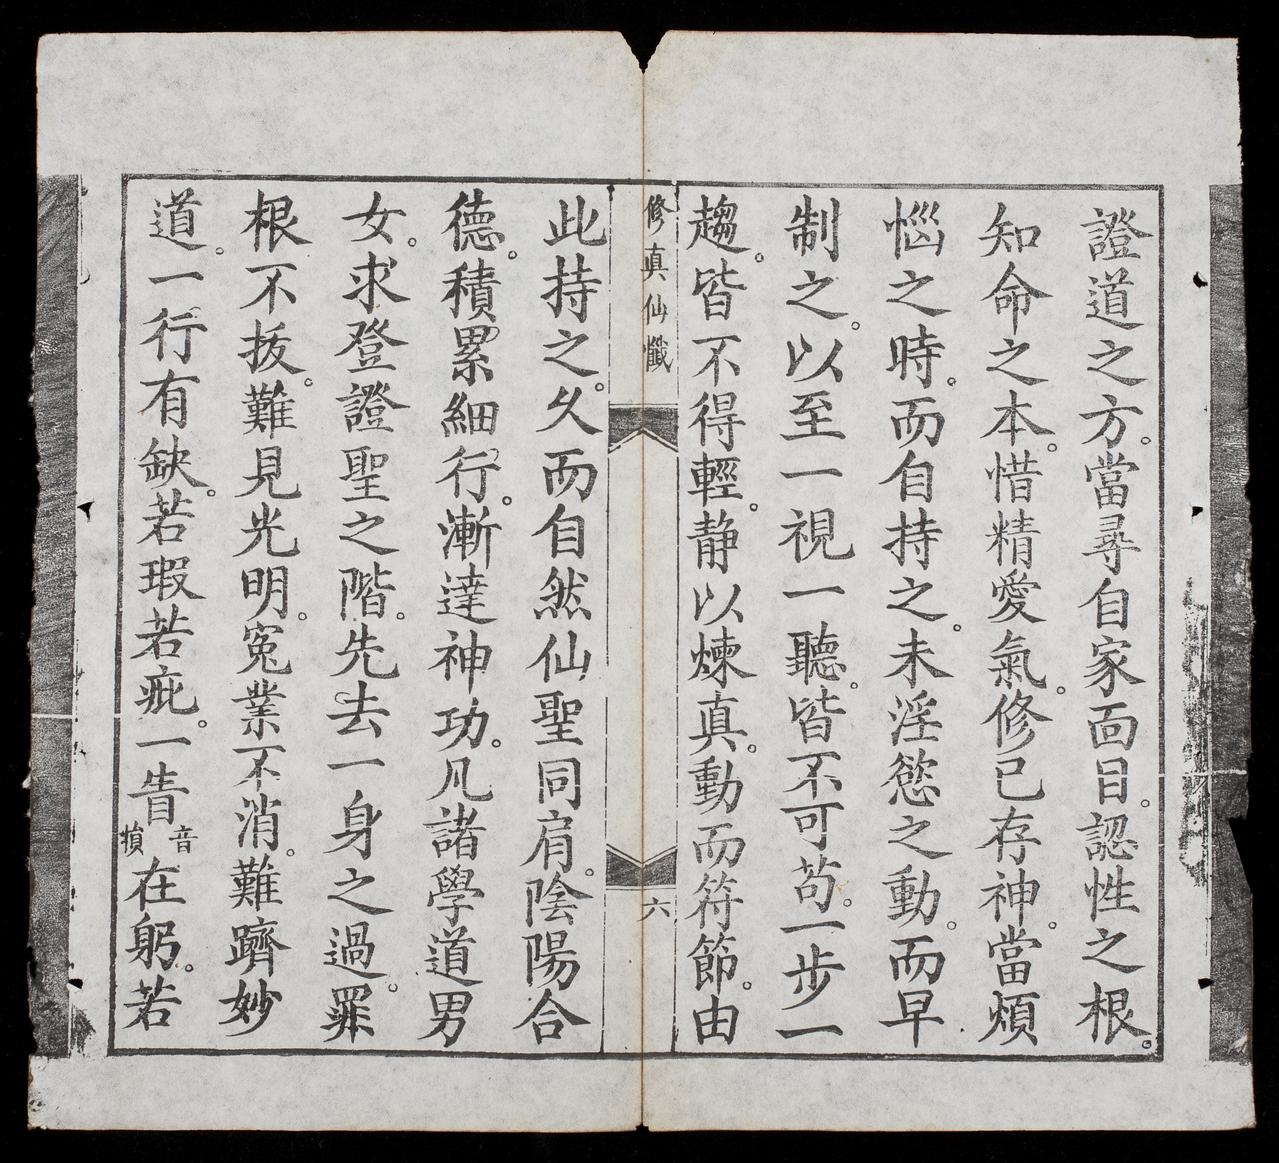 證道之方。當尋自家面目。認性之根。
知命之本。惜精愛氣。修已存神。當煩
惱之時。而自持之。未淫慾之動。而早
制之。以至一視一聽。皆不可苟。一步一
趨。皆不得輕。静以煉真。動而符節。由
修真仙懺
六
此持之。久而自然仙聖同肩。陰陽合
德。積累細行。漸達神功。凡諸學道男
女。求登證聖之階。先去一身之過。罪
根不拔。難見光明。寃業不消。難躋妙
道。一行有缺。若瑕若疵。一眚音㨋在躬。若